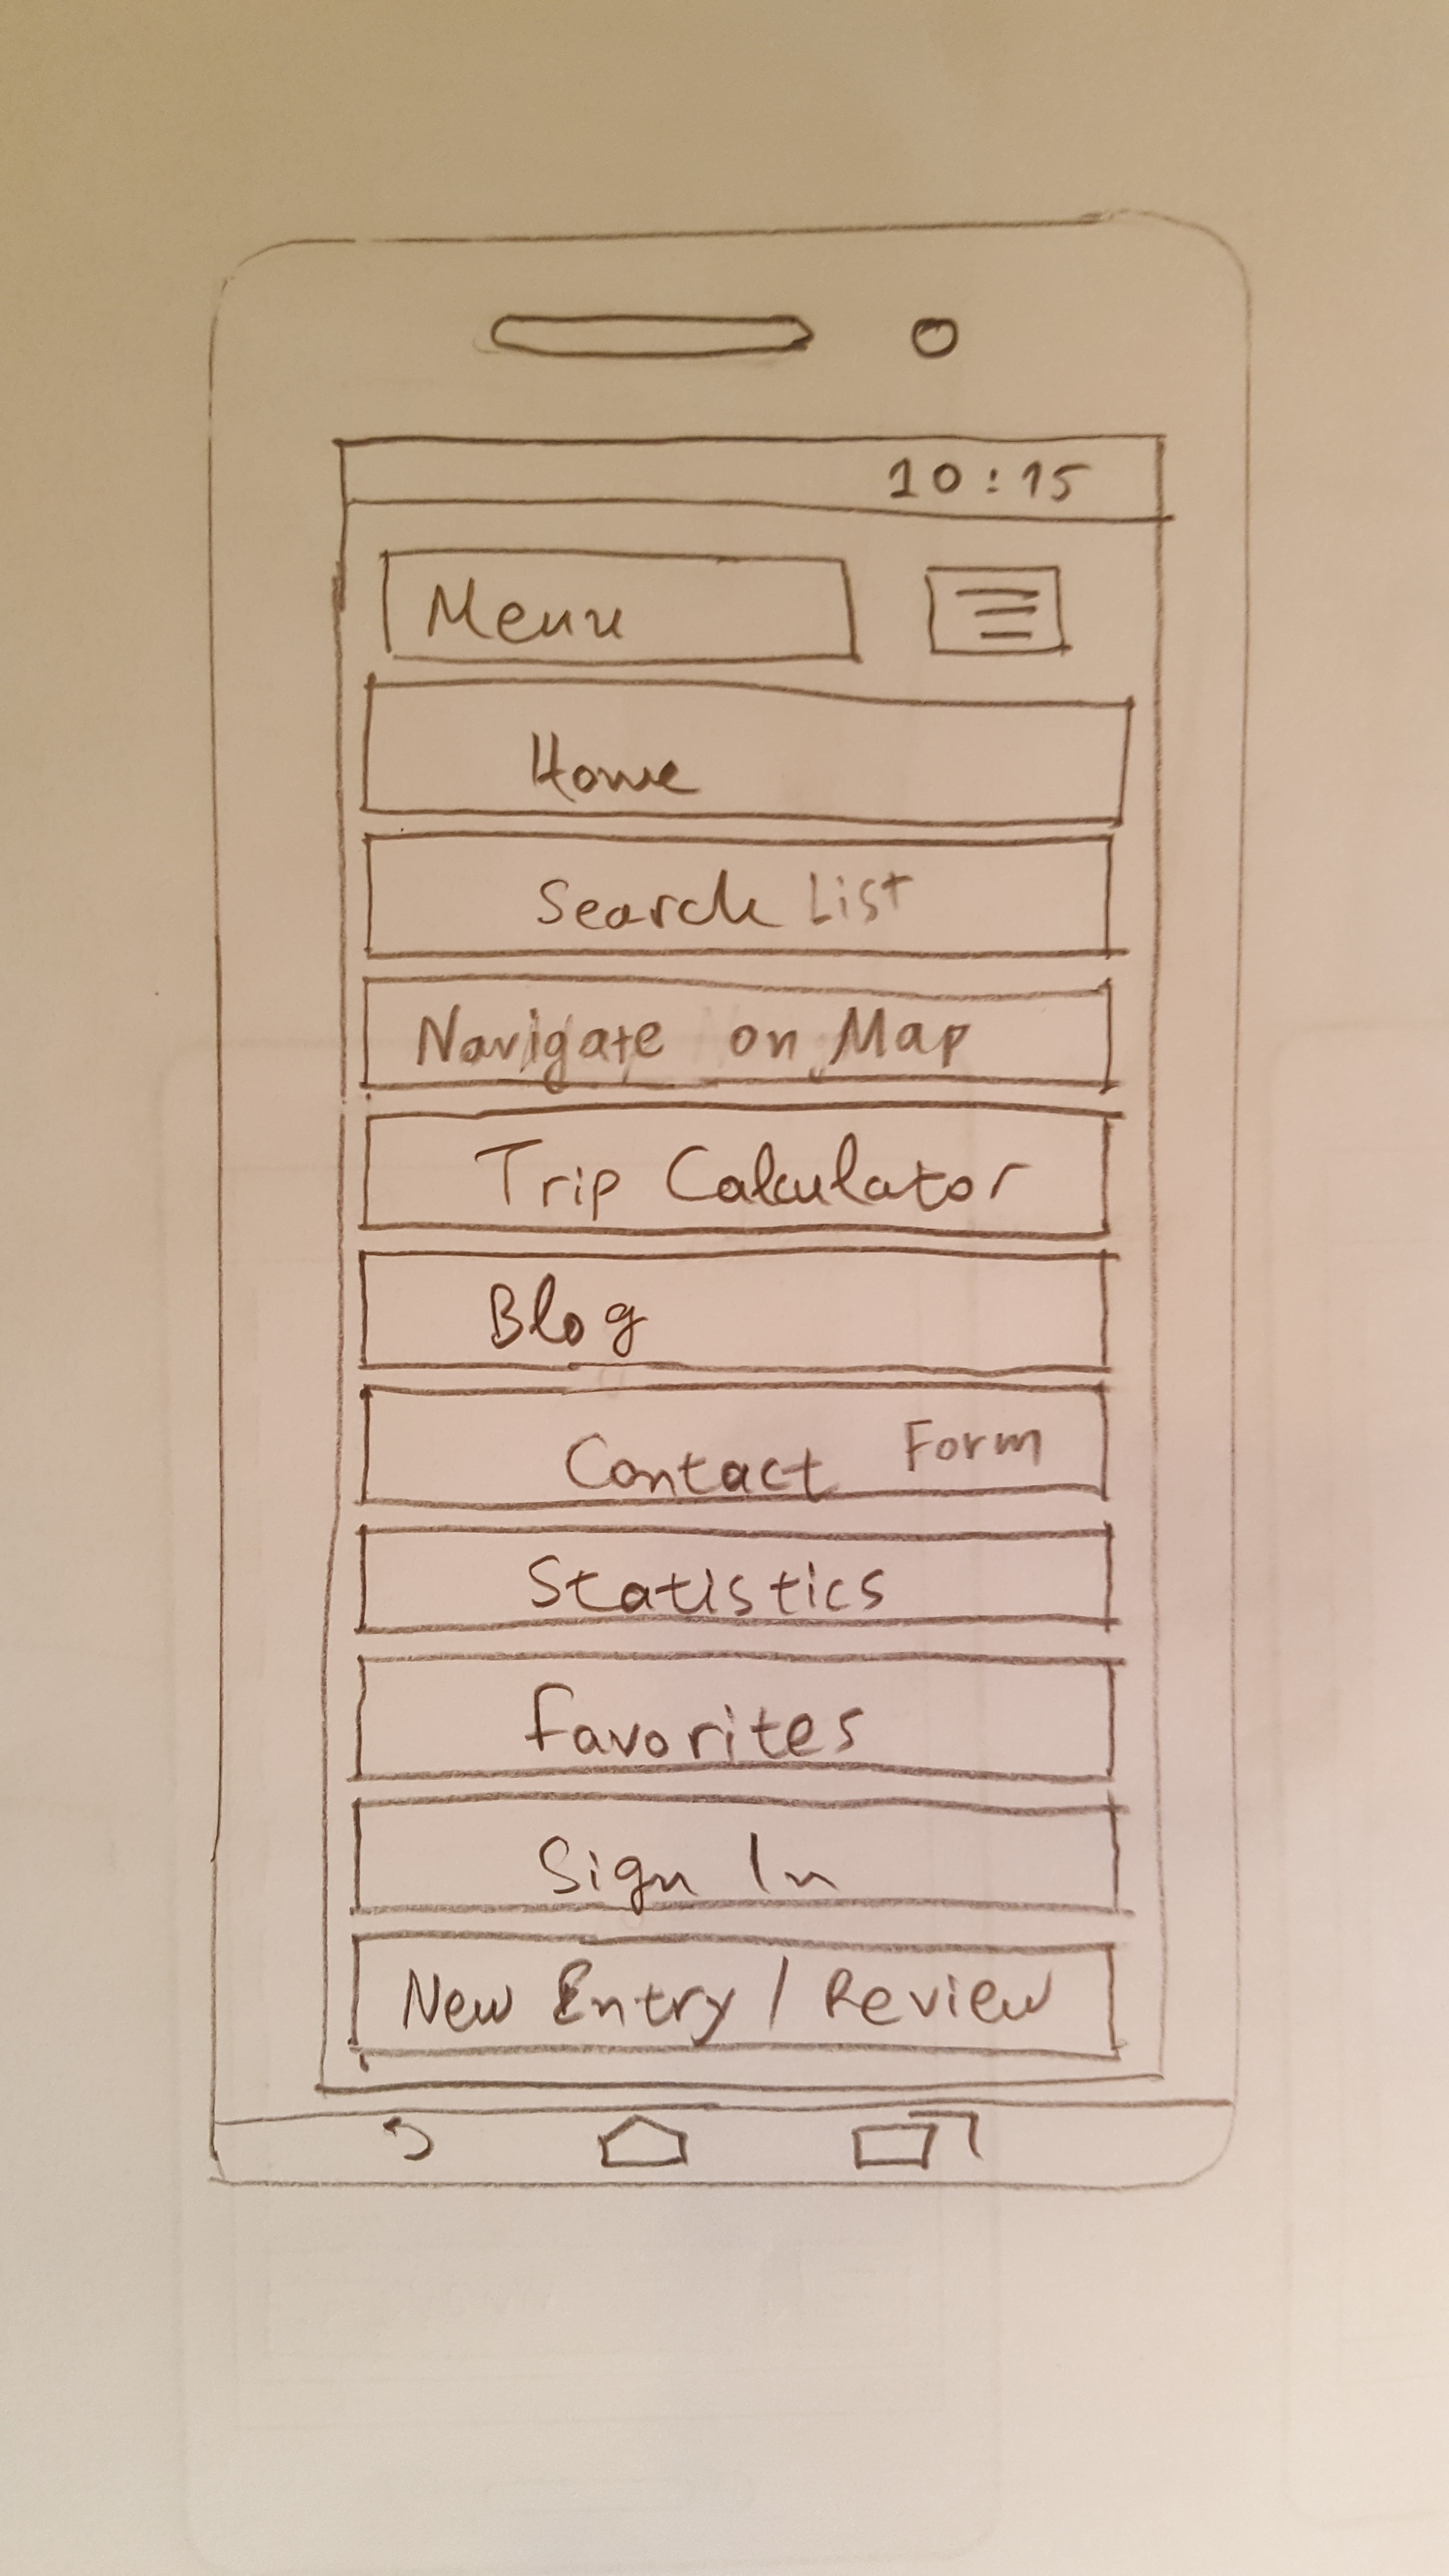 10:15
Menu
Home
Search List
Navigate on Map
Trip Calculator
Blog
Contact Form
Statistics
Favorites
Sign In
New Entry / Review